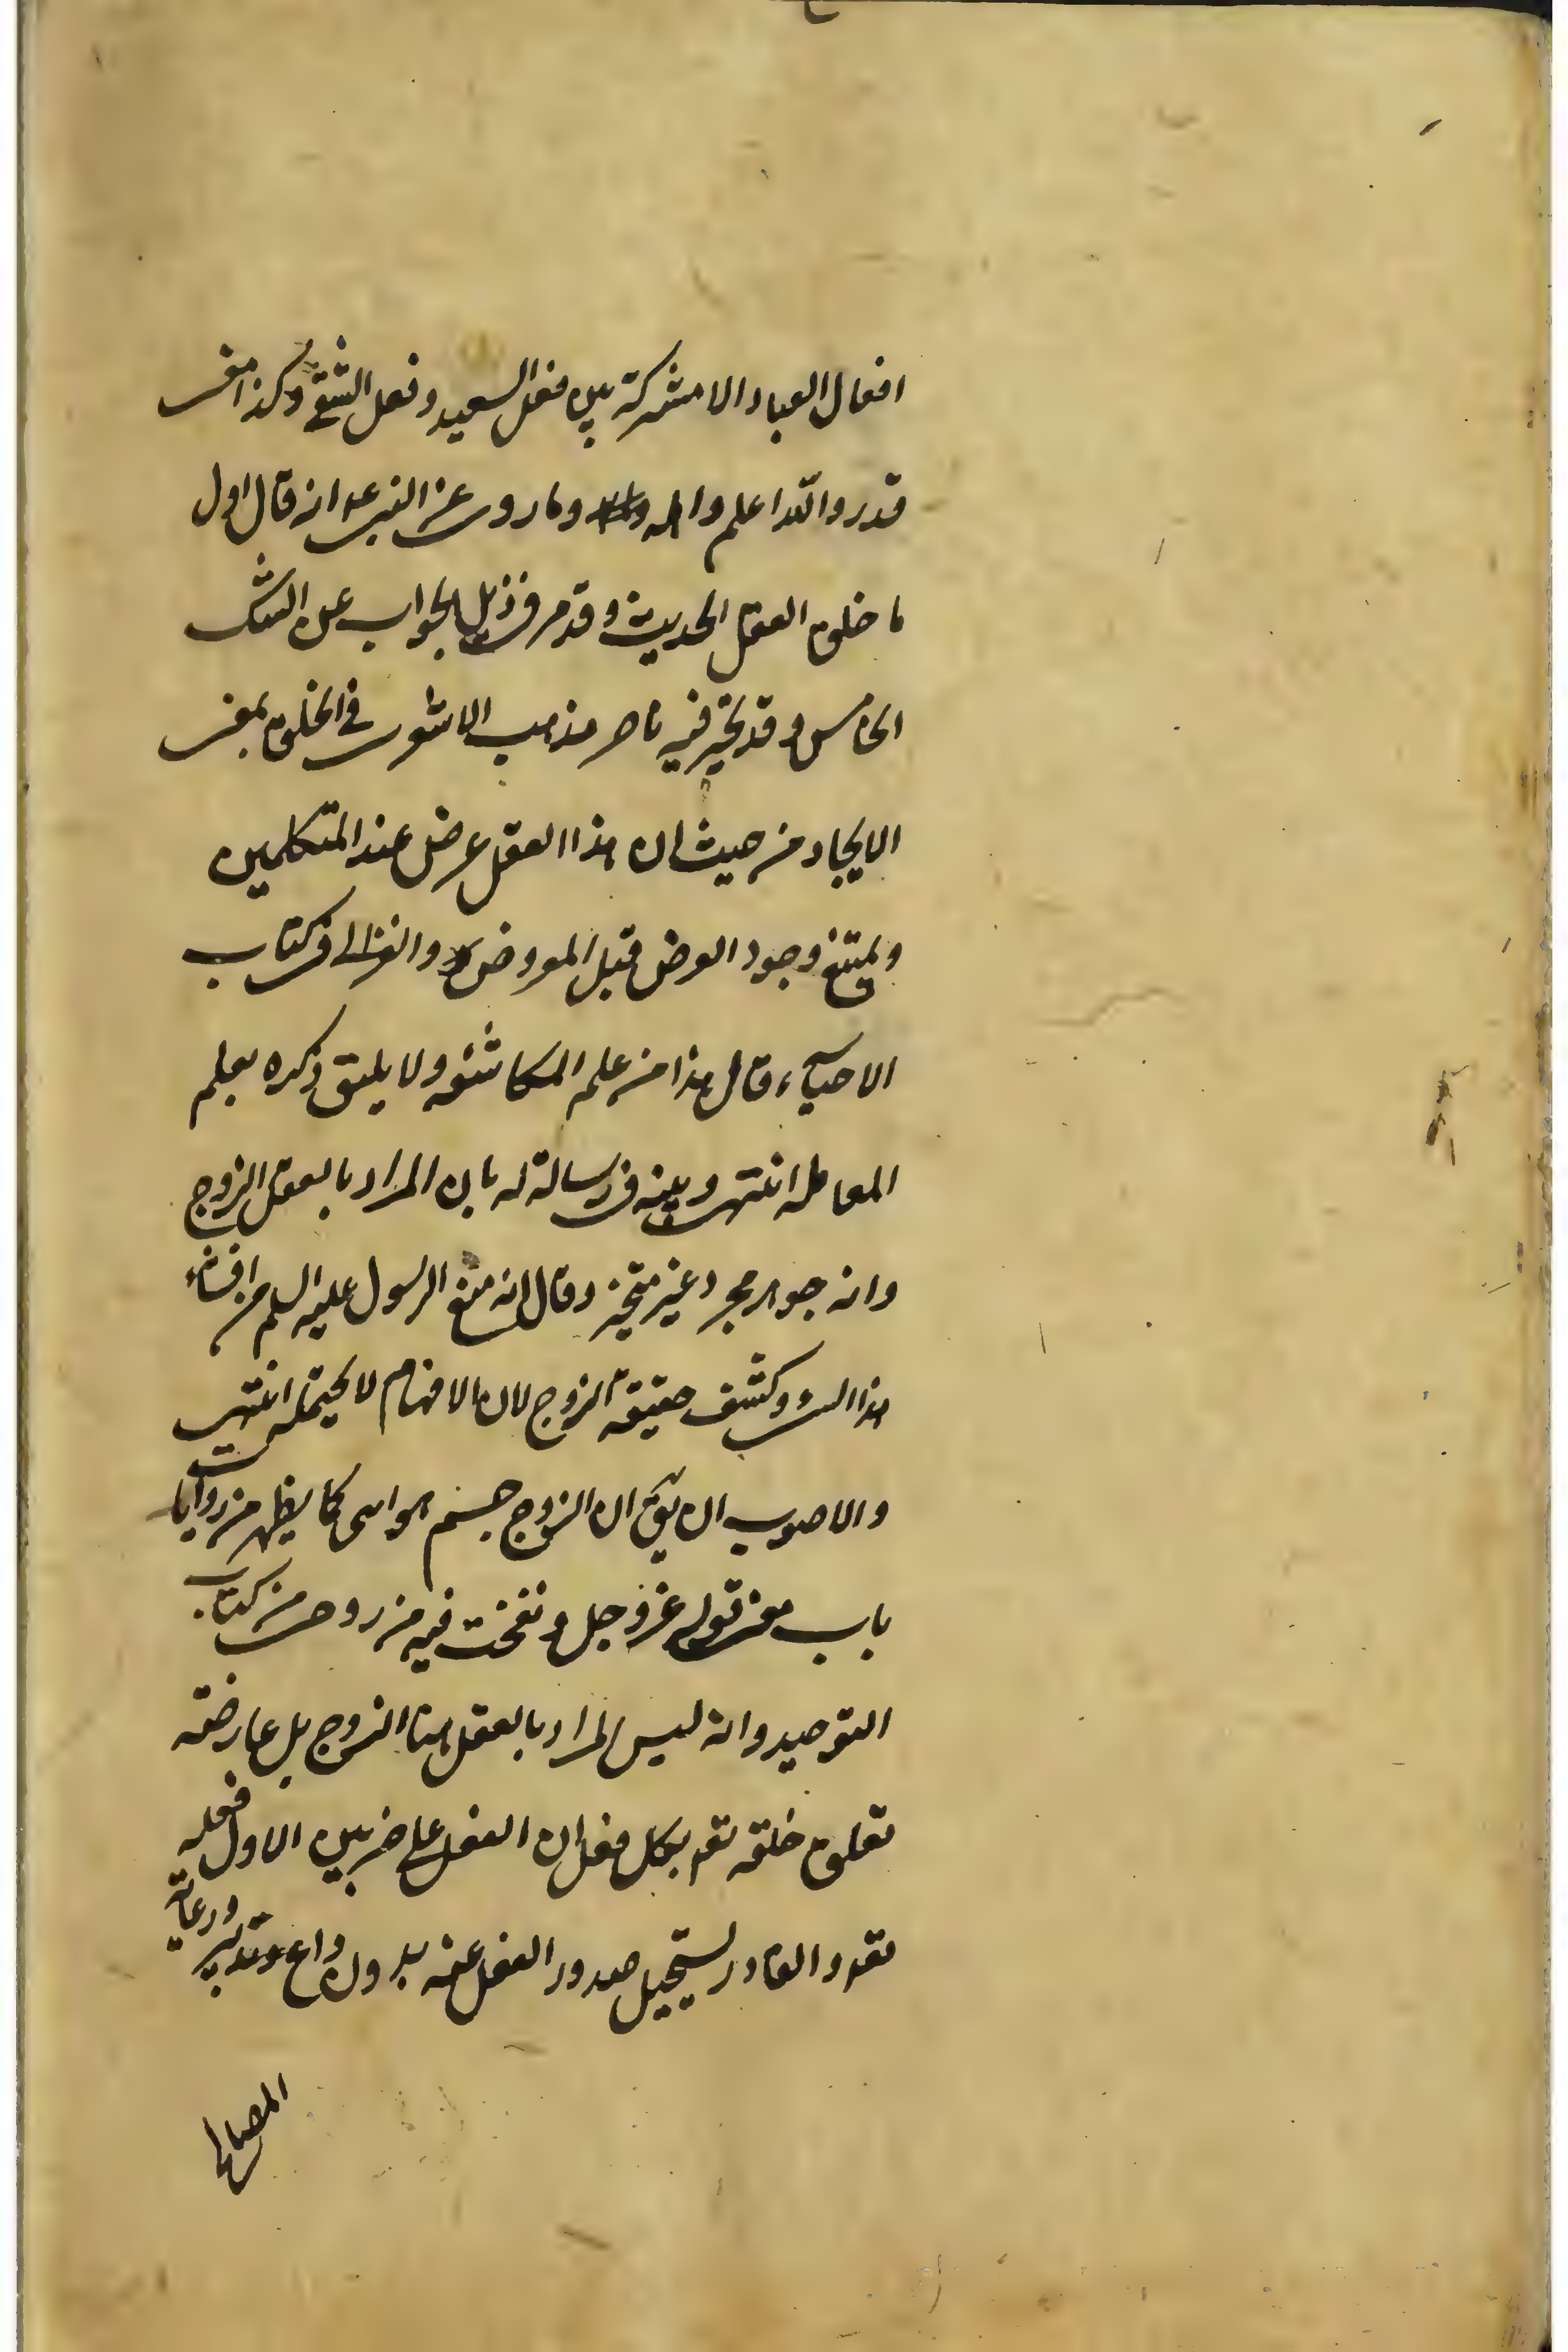 افعال العباد الا مشتركة بين فعل السعيد وفعل الشقي وكذا معنى
قدر والله اعلم وما روى عن النبى ع انه قال اول
ما خلق العقل الحديث وقد مر فى ذيل الجواب عن الشك
الخامس وقد تحير فيه ناصر مذهب الاشعرى فى الخلق بمعنى
الايجاد من حيث ان هذا العقل عرض عند المتكلمين
ويمتنع وجود العرض قبل المعروض والغزالى فى كتاب
الاحياء قال هذا من علم المكاشفه ولا يليق ذكره بعلم
المعامله انتهى وبينه فى رسالة له بان المراد بالعقل الروح
وانه جوهر مجرد غير متحيز وقال انه منع الرسول عليه السلم من افشاء
هذا السر وكشف حقيقة الروح لان الافهام لا يحتمله انتهى
والاصوب ان يق ان الروح جسم هوائى كما يظهر من روايات
باب معنى قوله عز وجل ونفخت فيه من روحى من كتاب
التوحيد وانه ليس المراد بالعقل هنا الروح بل عارضته
تعلق خلقه تعه بكل فعل ان الفعل على ضربين الاول فعله
تعه والقادر يستحيل صدور الفعل عنه بدون داع وتدبير ورعاية
المصالح